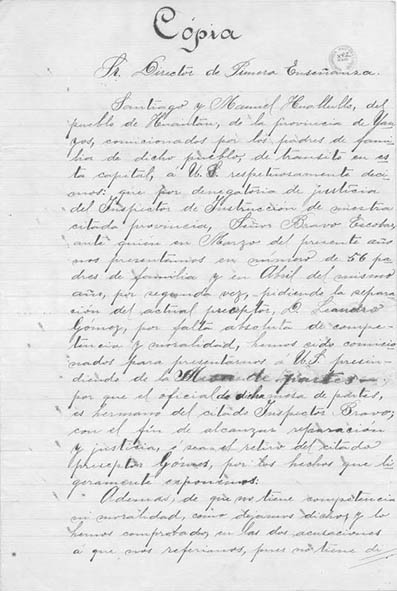 Cópia
Sr. Director de Primera Enseñanza.
Santiago y Manuel Huallullo, del
pueblo de Huantán, de la provincia de Yau
yos, comicionados por los padres de fami
lia de dicho pueblo, de transito en es
ta capital, a U.S. respetuosamente deci
mos: que por denegatoria de justicia
del Inspector de Instrucción de nuestra
citada provincia, Señor Bravo Escobar,
ante quien en Marzo del presente año
nos presentamos en número de 56 pa
dres de familia y en Abril del mismo
año, por segunda vez, pidiendo la separa
ción del actual preceptor, D. Leandro
Gómez, por falta absoluta de compe
tencia y moralidad, hemos sido comicio
nados para presentarnos á U.S. presin
diendo de la Mesa de partes
por que el oficial de dicha mesa de partes,
es hermano del citado Inspector Bravo;
con el fin de alcanzar reparación
y justicia, ó sea el retiro del citado
preceptor Gómes, por los hechos que li
geramente exponemos.
Además, de que no tiene competencia
ni moralidad, como dejamos dicho, y lo
hemos comprobado, en las dos acusaciones
á que nos referimos, pues no tiene de